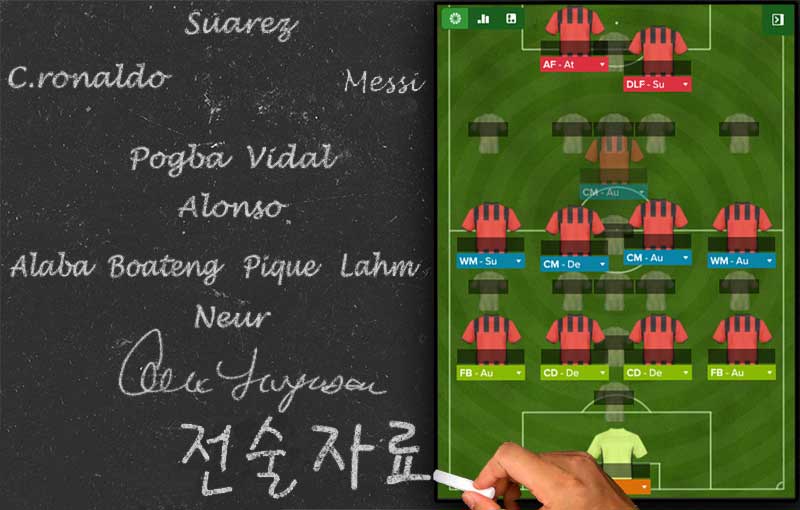 Suarez
C.ronaldo Messi
Pogba Vidal
Alonso
Alaba Boateng Pique Lahm
Neur
전술자료
AF - At
DLF - Su
CM - Au
WM - Su CM - De CM - Au WM - Au
FB - Au CD - De CD - De FB - Au